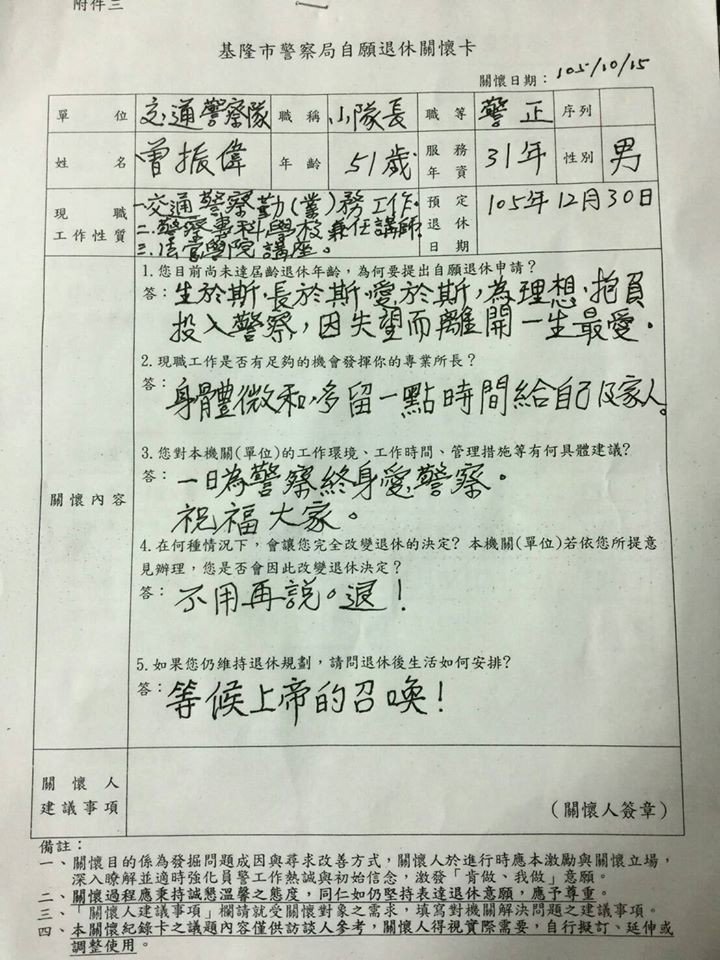 附件三
基隆市警察局自願退休關懷卡
關懷日期：105/10/15
單位 交通警察隊 職稱 小隊長 職等 警正 序列
姓名 曾振偉 年齡 51歲 服務年資 31年 性別 男
現職工作性質 一.交通警察勤(業)務工作. 預定退休日期 105年12月30日
二.警察專科學校兼任講師
三.法官學院講座。
關懷內容
1.您目前尚未達屆齡退休年齡，為何要提出自願退休申請？
答：生於斯.長於斯.愛於斯，為理想.抱負
投入警察，因失望而離開一生最愛。
2.現職工作是否有足夠的機會發揮你的專業所長？
答：身體微和.多留一點時間給自己及家人。
3.您對本機關(單位)的工作環境、工作時間、管理措施等有何具體建議？
答：一日為警察終身愛警察。
祝福大家。
4.在何種情況下，會讓您完全改變退休的決定？本機關(單位)若依您所提意
見辦理，您是否會因此改變退休決定？
答：不用再說。退！
5.如果您仍維持退休規劃，請問退休後生活如何安排？
答：等候上帝的召喚！
關懷人
建議事項
(關懷人簽章)
備註：
一、關懷目的係為發掘問題成因與尋求改善方式，關懷人於進行時應本激勵與關懷立場，
深入瞭解並適時強化員警工作熱誠與初始信念，激發「肯做、我做」意願。
二、關懷過程應秉持誠懇溫馨之態度，同仁如仍堅持表達退休意願，應予尊重。
三、「關懷人建議事項」欄請就受關懷對象之需求，填寫對機關解決問題之建議事項。
四、本關懷紀錄卡之議題內容僅供訪談人參考，關懷人得視實際需要，自行擬訂、延伸或
調整使用。